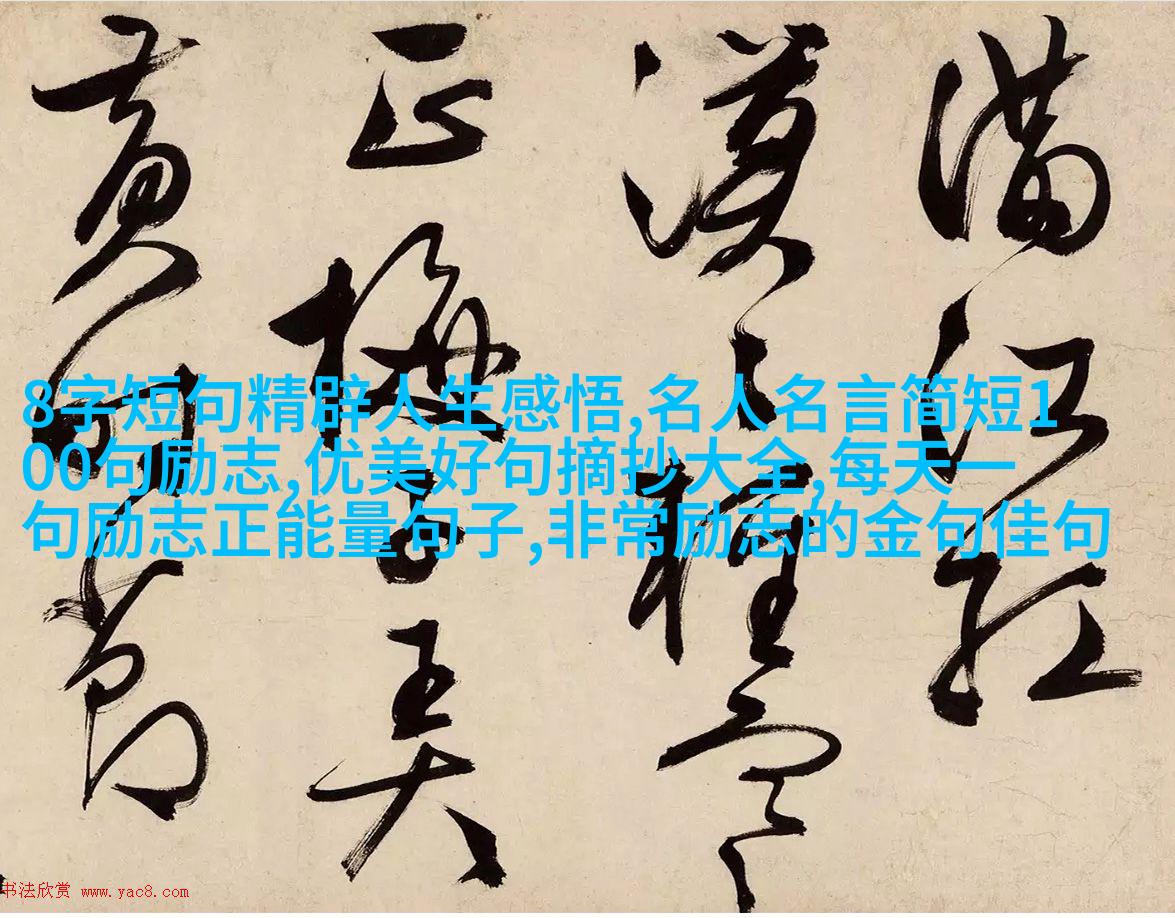 滿江紅
漠〻輕陰
正梅子弄
黃時節
8字短句精辟人生感悟,名人名言简短1
00句励志,优美好句摘抄大全,每天一
句励志正能量句子,非常励志的金句佳句
书法欣赏 www.yac8.com